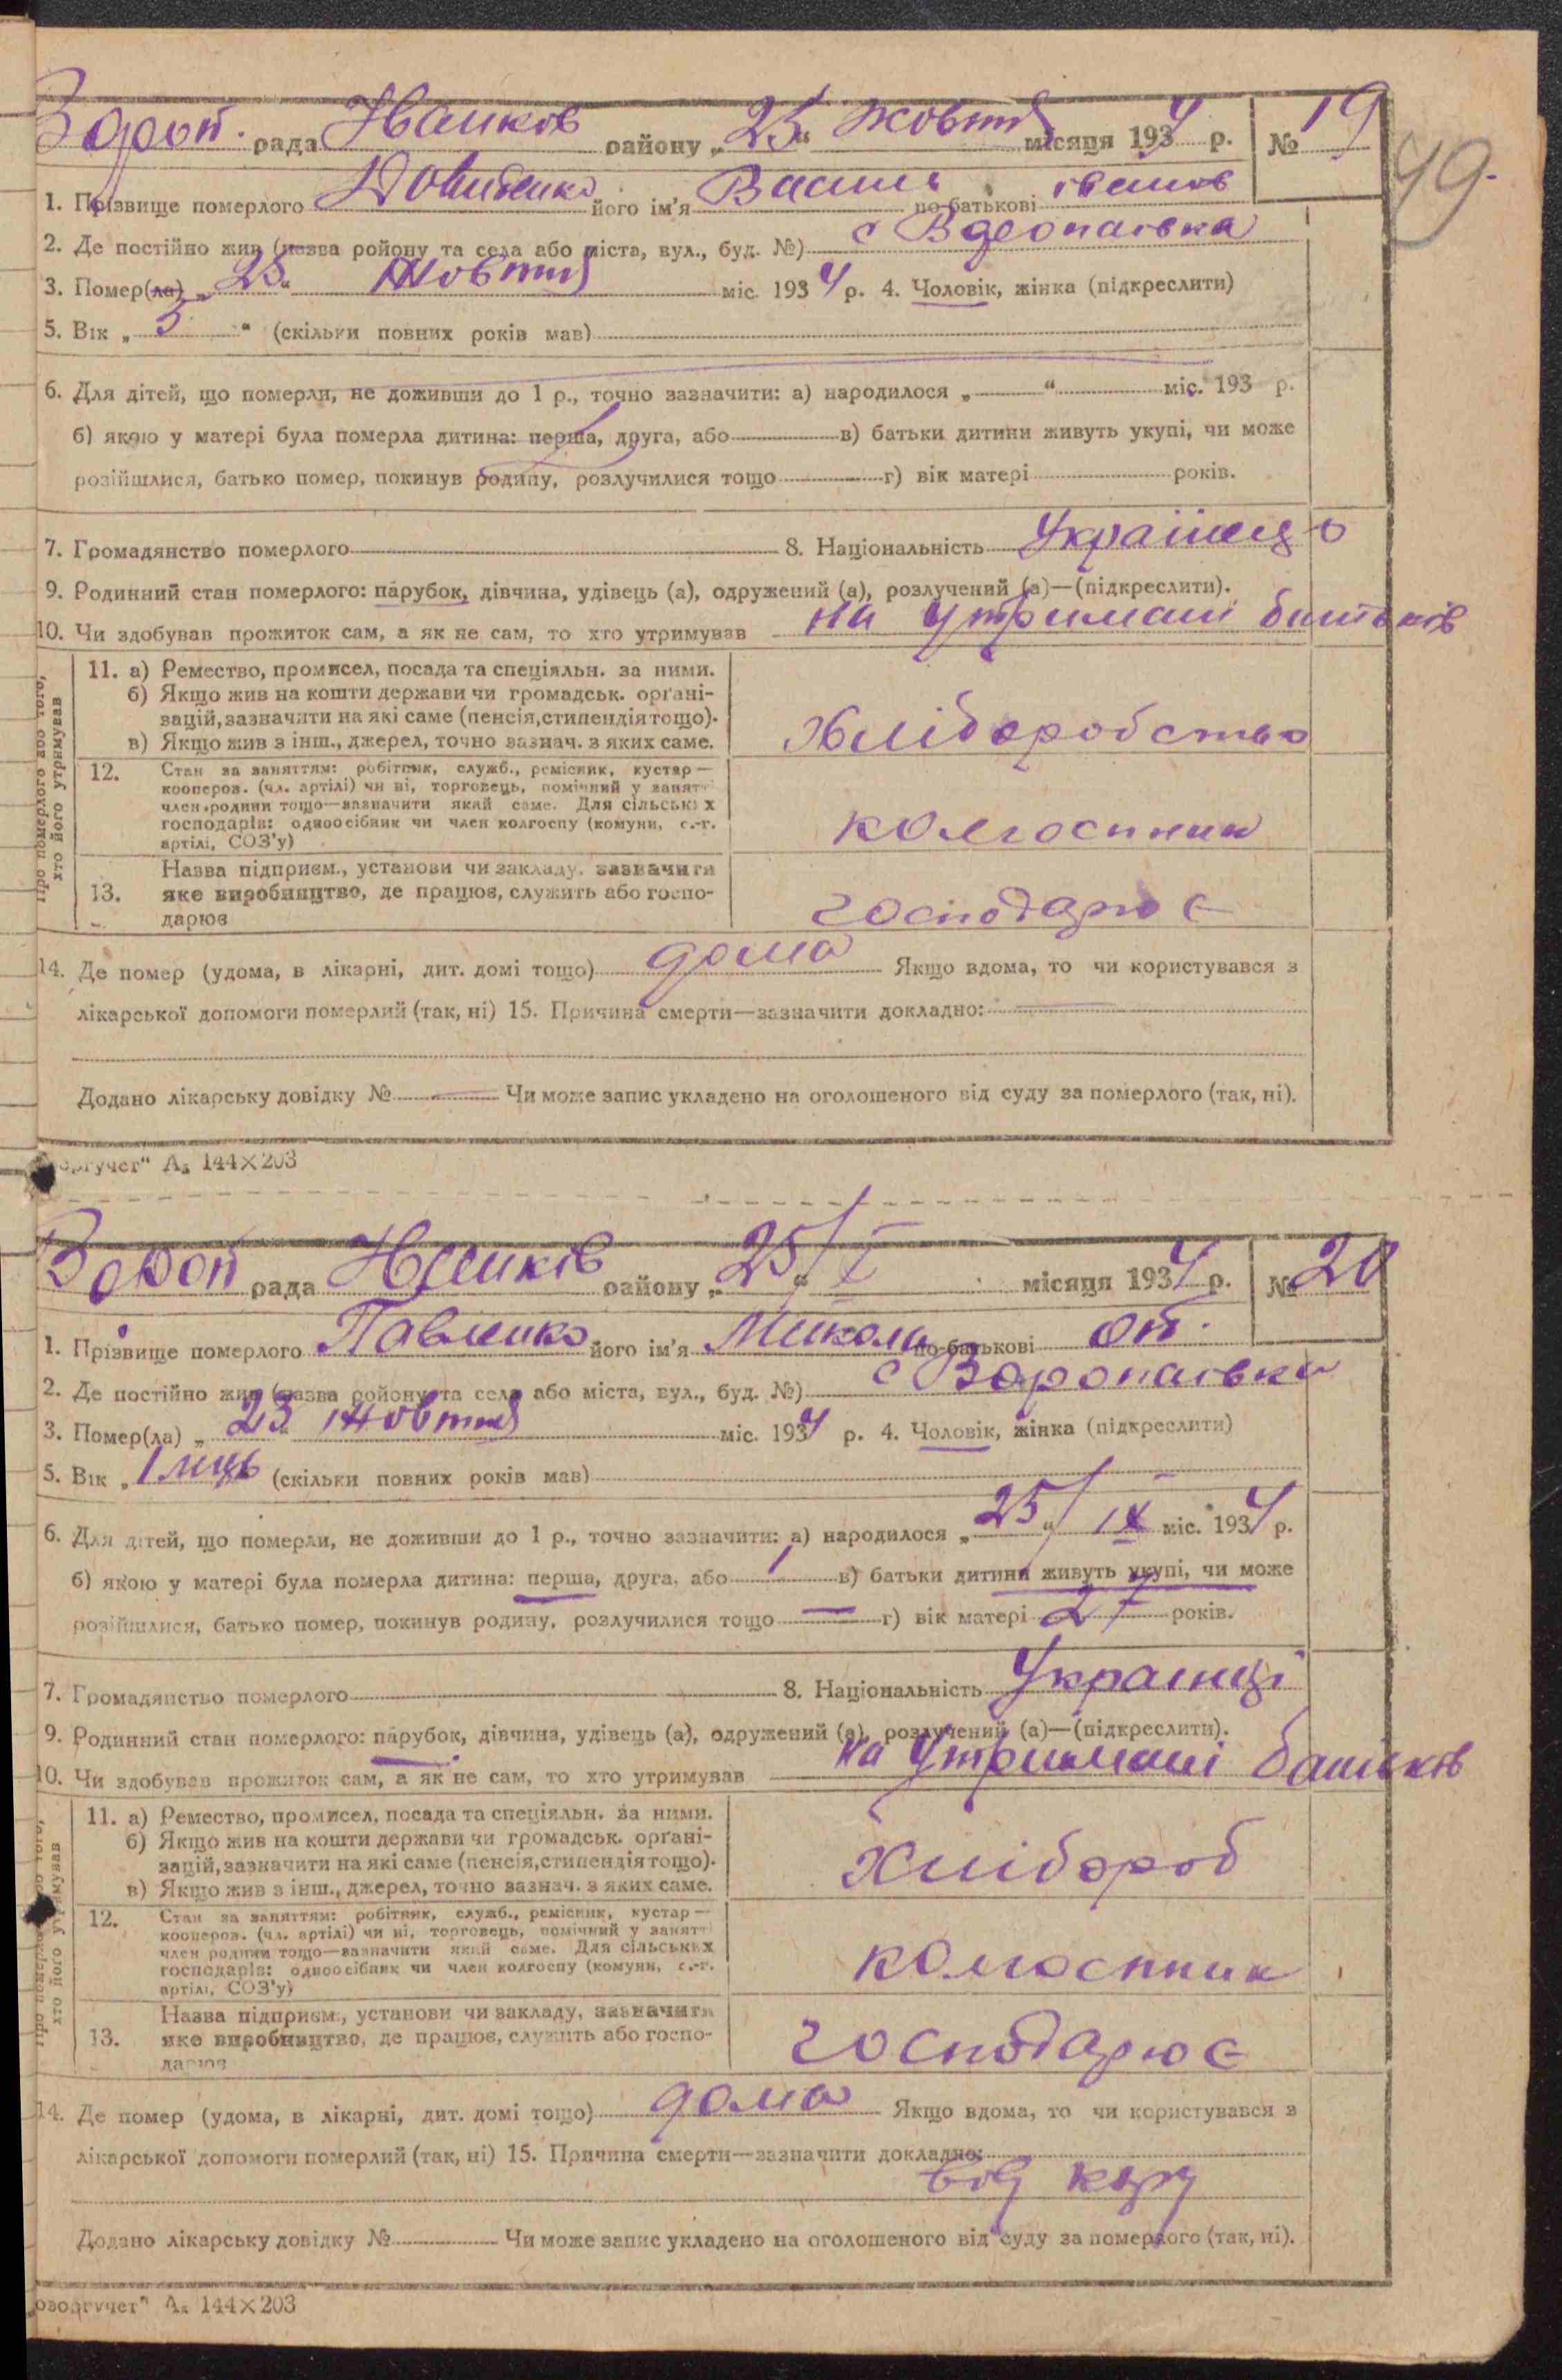 Вороп. рада Іванков району „25“ жовтня місяця 1934 р. № 19
49.
1. Прізвище померлого Довиденко його ім'я Василь по-батькові іванов
2. Де постійно жив (назва ройону та села або міста, вул., буд. №) с Воропаівка
3. Помер(ла) „23“ жовтня міс. 1934 р. 4. Чоловік, жінка (підкреслити)
5. Вік „3“ (скільки повних років мав)
6. Для дітей, що померли, не доживши до 1 р., точно зазначити: а) народилося „ “ міс. 193 р.
б) якою у матері була померла дитина: перша, друга, або в) батьки дитини живуть укупі, чи може
розійшлися, батько помер, покинув родину, розлучилися тощо г) вік матері років.
7. Громадянство померлого 8. Національність Українець
9. Родинний стан померлого: парубок, дівчина, удівець (а), одружений (а), розлучений (а)—(підкреслити).
10. Чи здобував прожиток сам, а як не сам, то хто утримував на утримані батьків
Про померлого або того, хто його утримував
11. а) Ремество, промисел, посада та спеціяльн. за ними.
б) Якщо жив на кошти держави чи громадськ. орґані-
зацій, зазначити на які саме (пенсія, стипендія тощо).
в) Якщо жив з інш., джерел, точно зазнач. з яких саме.
Хліборобство
12. Стан за заняттям: робітник, служб., ремісник, кустар—
кооперов. (чл. артілі) чи ні, торговець, помічний у занятті
член родини тощо—зазначити який саме. Для сільських
господарів: одноосібник чи член колгоспу (комуни, с.-г.
артілі, СОЗ'у)
колгоспник
13. Назва підприєм., установи чи закладу, зазначити
яке виробництво, де працює, служить або госпо-
дарює
господарює
14. Де помер (удома, в лікарні, дит. домі тощо) дома Якщо вдома, то чи користувався з
лікарської допомоги померлий (так, ні) 15. Причина смерти—зазначити докладно:
Додано лікарську довідку № Чи може запис укладено на оголошеного від суду за померлого (так, ні).
оргучет" А₅ 144×203
Вороп рада Іванків району „25/X“ місяця 1934 р. № 20
1. Прізвище померлого Павленко його ім'я Микола по-батькові оп.
2. Де постійно жив (назва ройону та села або міста, вул., буд. №) с Воропаівка
3. Помер(ла) „23“ жовтня міс. 1934 р. 4. Чоловік, жінка (підкреслити)
5. Вік „1 міць (скільки повних років мав)
6. Для дітей, що померли, не доживши до 1 р., точно зазначити: а) народилося „25“/ IX міс. 1934 р.
б) якою у матері була померла дитина: перша, друга, або 1 в) батьки дитини живуть укупі, чи може
розійшлися, батько помер, покинув родину, розлучилися тощо — г) вік матері 27 років.
7. Громадянство померлого 8. Національність Українці
9. Родинний стан померлого: парубок, дівчина, удівець (а), одружений (а), розлучений (а)—(підкреслити).
10. Чи здобував прожиток сам, а як не сам, то хто утримував на утримані батьків
хто його утримував
11. а) Ремество, промисел, посада та спеціяльн. за ними.
б) Якщо жив на кошти держави чи громадськ. орґані-
зацій, зазначити на які саме (пенсія, стипендія тощо).
в) Якщо жив з інш., джерел, точно зазнач. з яких саме.
Хлібороб
12. Стан за заняттям: робітник, служб., ремісник, кустар—
кооперов. (чл. артілі) чи ні, торговець, помічний у занятті
член родини тощо—зазначити який саме. Для сільських
господарів: одноосібник чи член колгоспу (комуни, с.-г.
артілі, СОЗ'у)
колгоспник
13. Назва підприєм., установи чи закладу, зазначити
яке виробництво, де працює, служить або госпо-
дарює
господарює
14. Де помер (удома, в лікарні, дит. домі тощо) дома Якщо вдома, то чи користувався з
лікарської допомоги померлий (так, ні) 15. Причина смерти—зазначити докладно:
від кору
Додано лікарську довідку № Чи може запис укладено на оголошеного від суду за померлого (так, ні).
оюзоргучет" А₅ 144×203